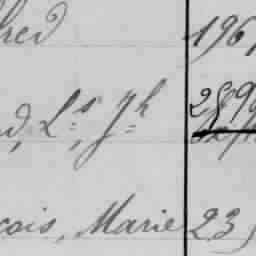 hred 196
d, L.s Jh 289
çois, Marie 23